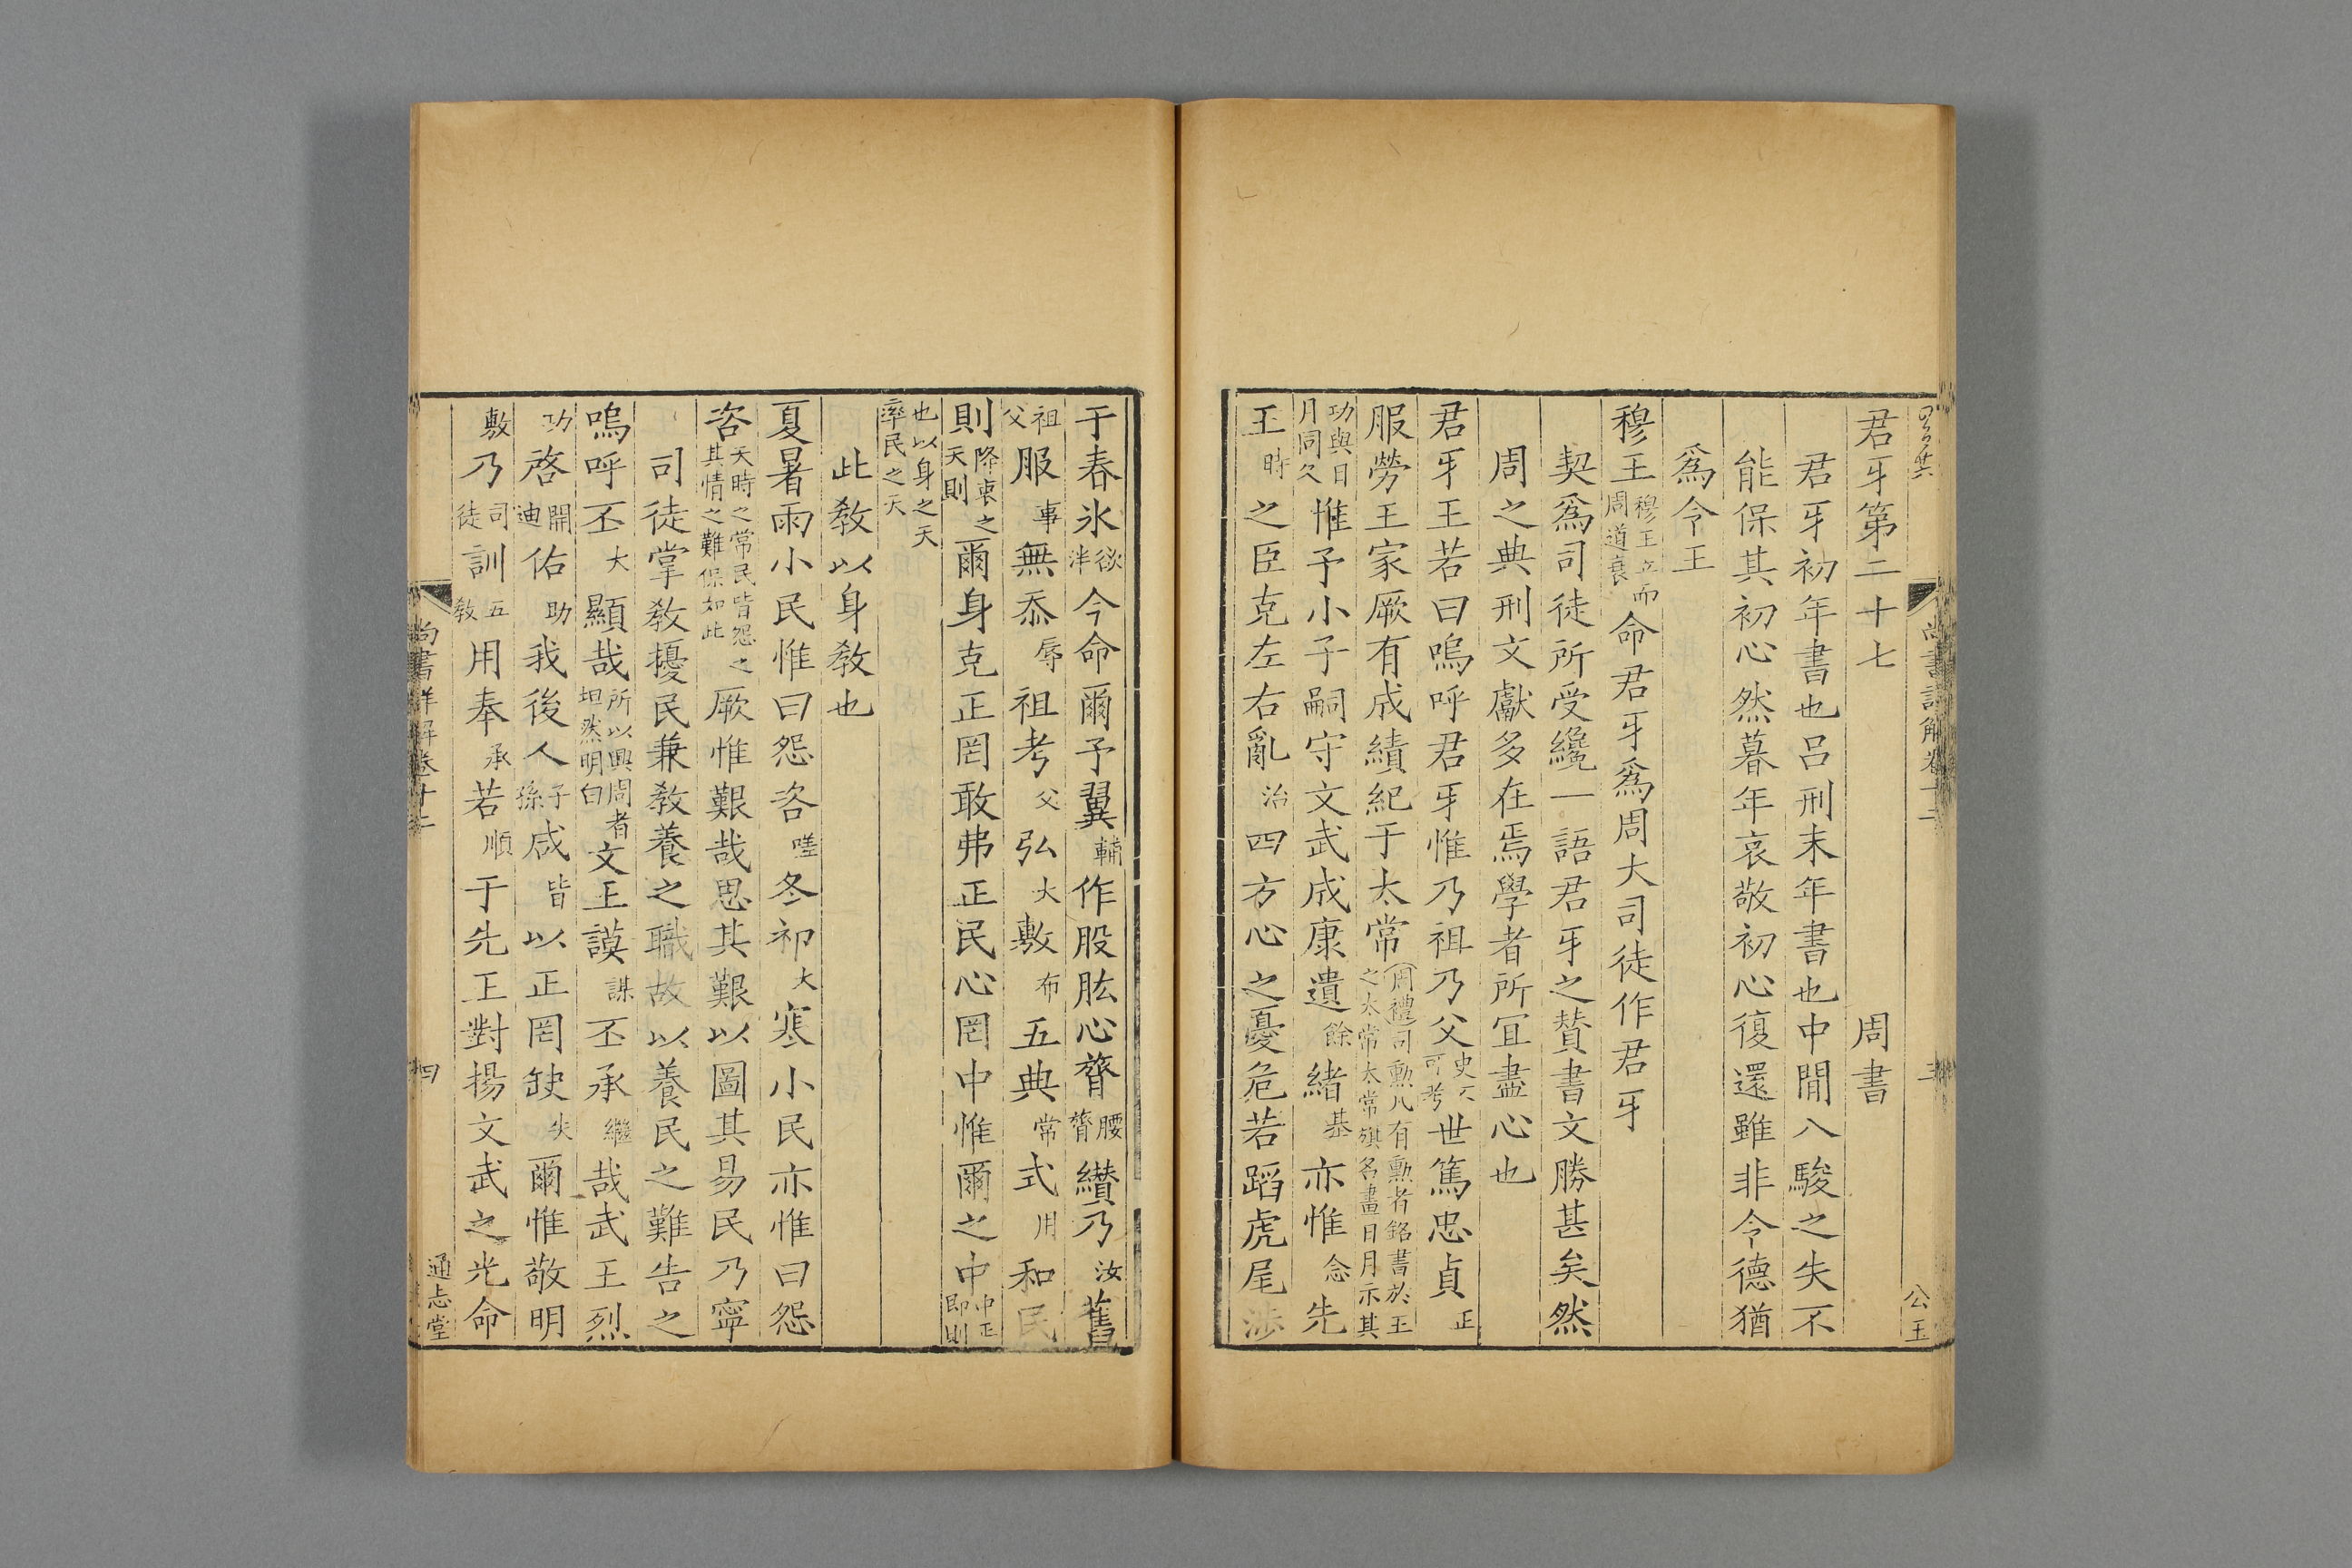 君牙第二十七 周書
君牙初年書也呂刑末年書也中閒八駿之失不
能保其初心然暮年哀敬初心復還雖非令德猶
爲令王
穆王穆王立而周道衰命君牙爲周大司徒作君牙
契爲司徒所受纔一語君牙之贊書文勝甚矣然
周之典刑文獻多在焉學者所宜盡心也
君牙王若曰嗚呼君牙惟乃祖乃父史不可考世篤忠貞正
服勞王家厥有成績紀于太常周禮司勲凡有勲者銘書於王之太常太常旗名畫日月示其
功與日月同久惟予小子嗣守文武成康遺餘緒基亦惟念先
王時之臣克左右亂治四方心之憂危若蹈虎尾涉
于春氷欲泮今命爾予翼輔作股肱心膂腰膂纉乃汝舊
祖父服事無忝辱祖考父弘大敷布五典常式用和民
則降衷之天則爾身克正罔敢弗正民心罔中惟爾之中中正即則
也以身之天率民之天
此敎以身敎也
夏暑雨小民惟曰怨咨嗟冬祁大寒小民亦惟曰怨
咨天時之常民皆怨之其情之難保如此厥惟艱哉思其艱以圖其易民乃寧
司徒掌敎擾民兼敎養之職故以養民之難告之
嗚呼丕大顯哉所以興周者坦然明白文王謨謀丕承繼哉武王烈
功啓開迪佑助我後人子孫咸皆以正罔缺失爾惟敬明
敷乃司徒訓五敎用奉承若順于先王對揚文武之光命
尚書詳解卷十二
四
通志堂